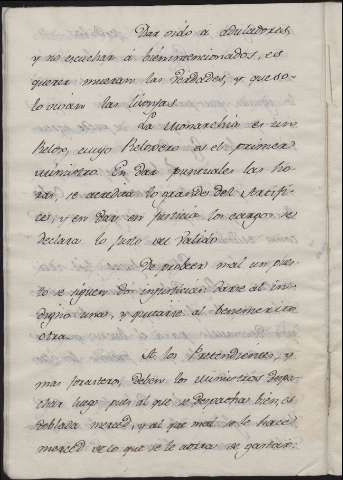 Dar oido á aduladores,
y no escuchar á bienintencionados, es
querer mueran las Verdades, y que so-
lo vivan las lisonjas.
La Monarchia es un
Relox, cuyo Reloxero es el primer
Ministro. En dar puntuales las ho-
ras, se acredita lo grande del Artifi-
ce, y en dar en Justicia los cargos se
declara lo Justo del Valido.
De proveer mal un pues-
to se siguen dos injusticias darse al in-
digno una, y quitarse al benemerito
otra.
A los Pretendientes, y
mas forasteros, deben los Ministros despa-
char luego, pues al que se despacha bien, es
doblada merced, y al que mal se le hace
merced de lo que se le ahorra de gastar.